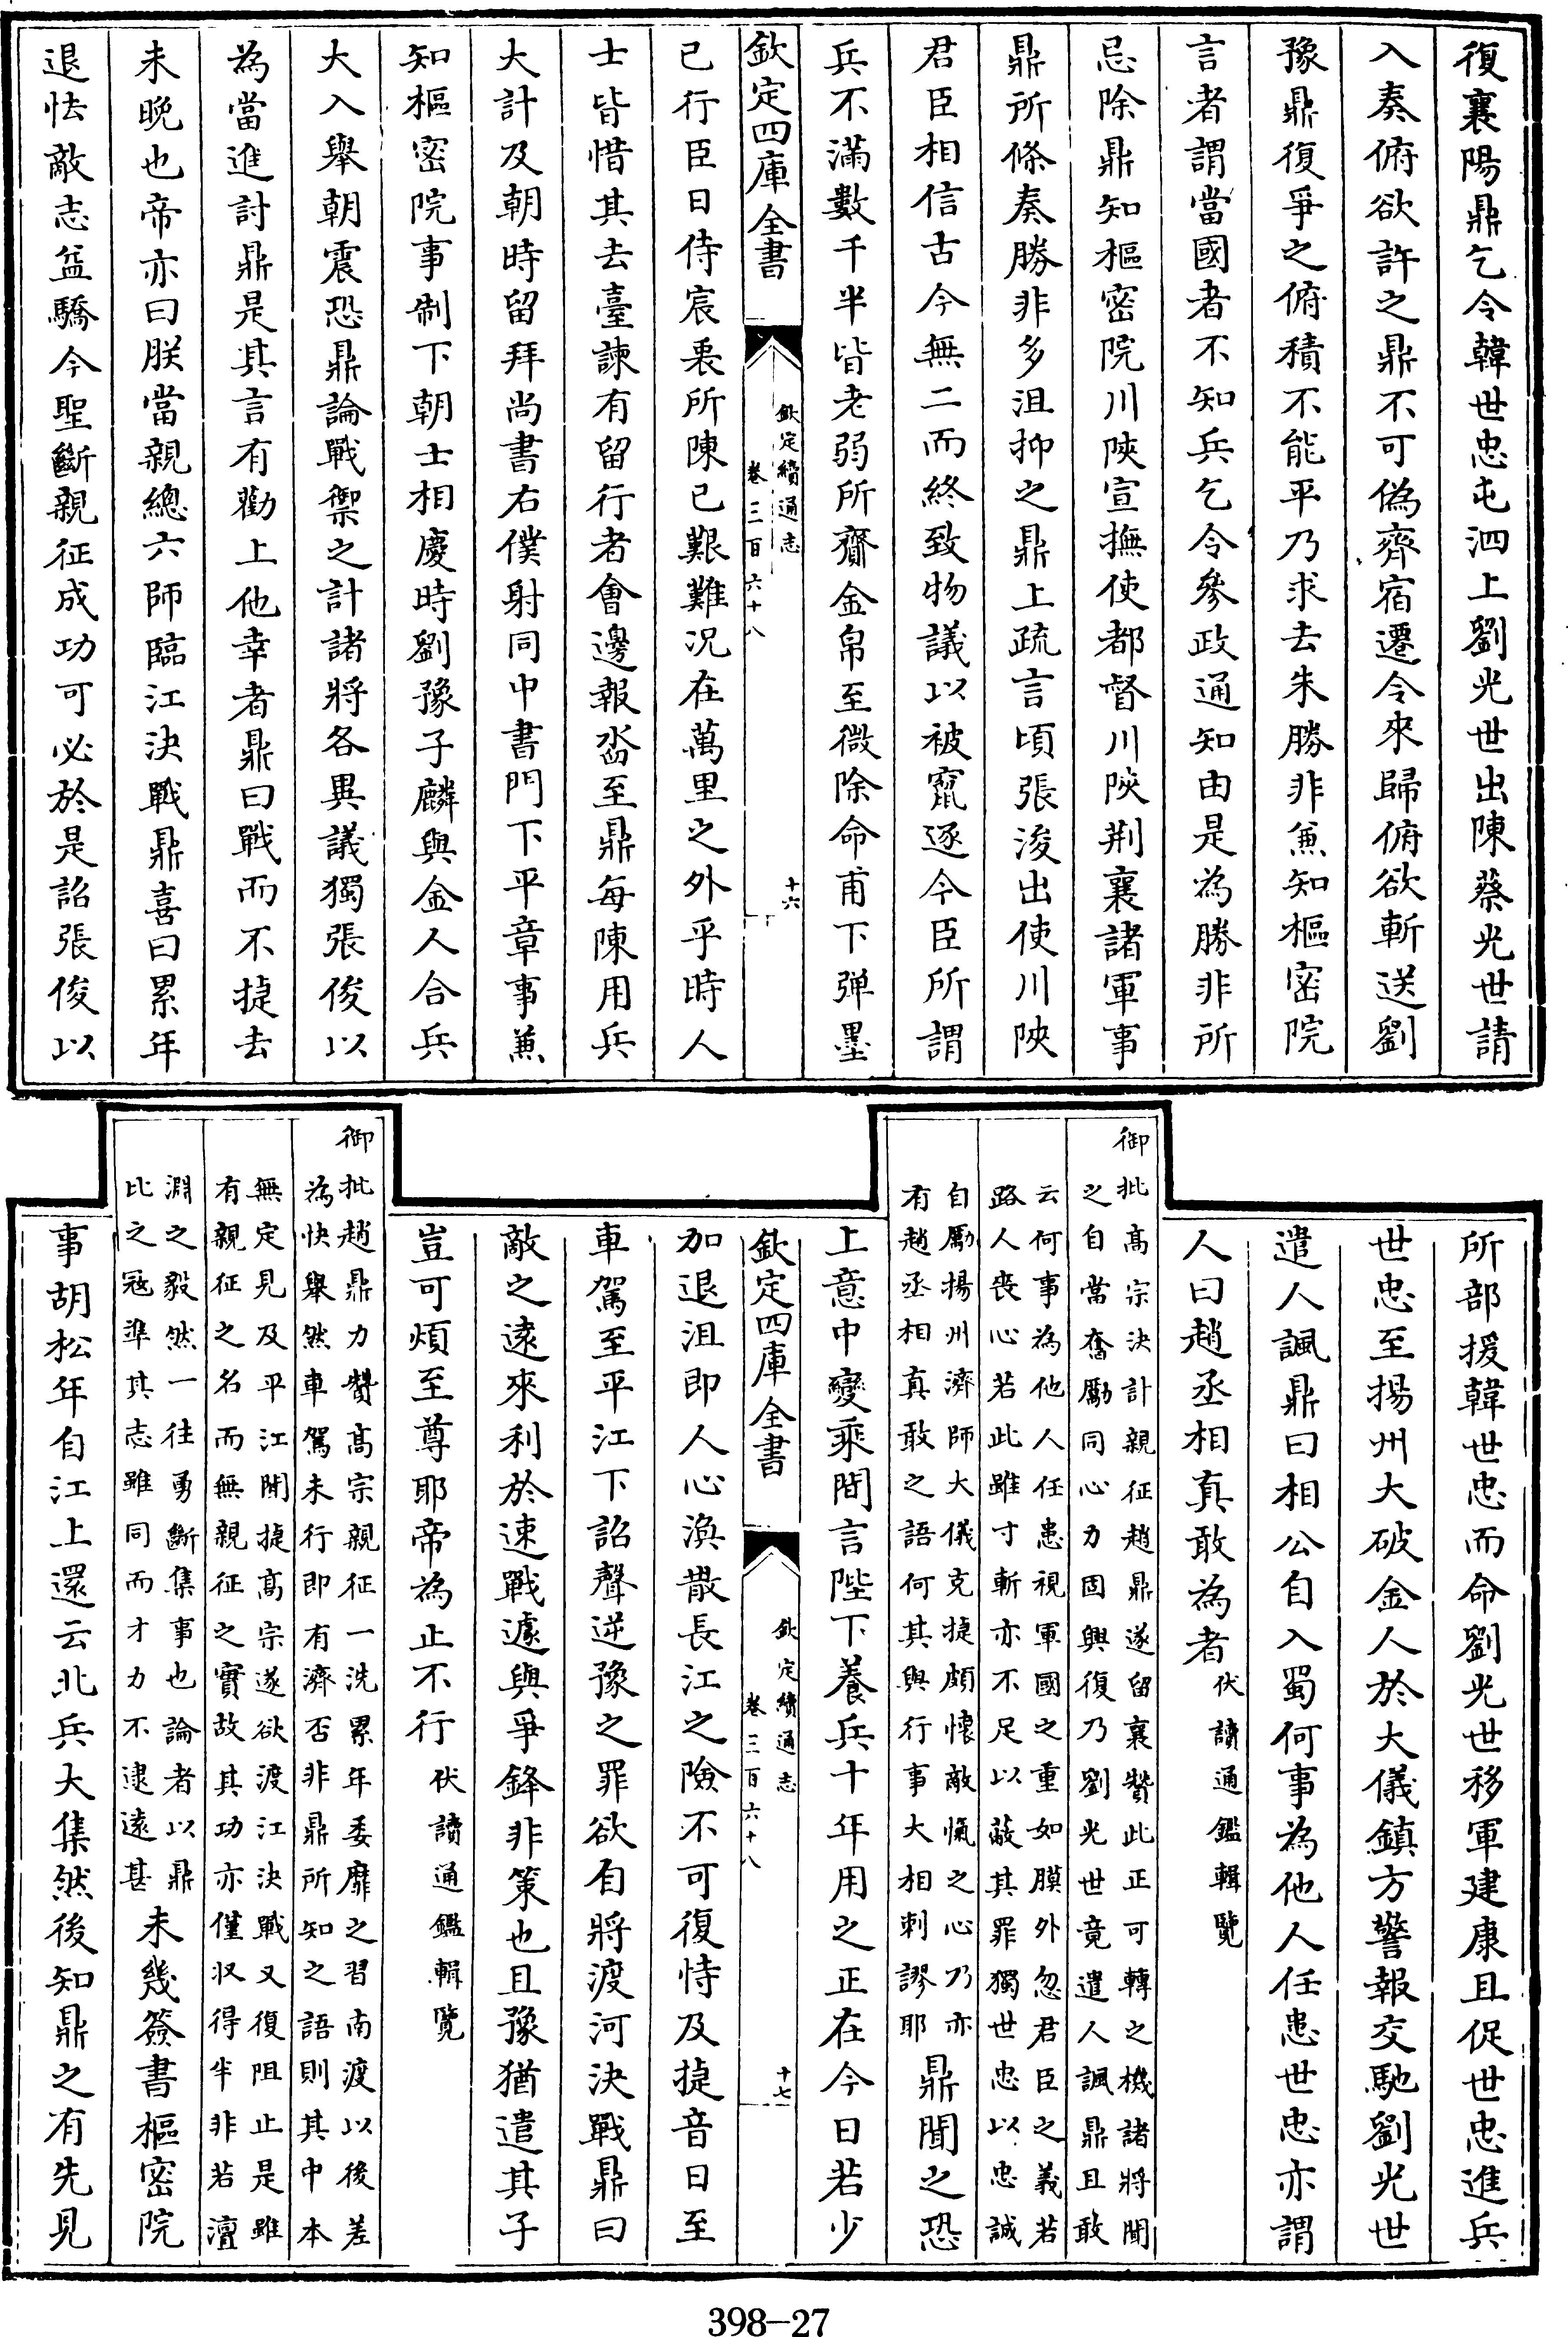 復襄陽鼎乞令韓世忠屯泗上劉光世出陳蔡光世請
入奏俯欲許之鼎不可偽齊宿遷令來歸俯欲斬送劉
豫鼎復爭之俯積不能平乃求去朱勝非兼知樞密院
言者謂當國者不知兵乞令參政通知由是為勝非所
忌除鼎知樞密院川陝宣撫使都督川陝荆襄諸軍事
鼎所條奏勝非多沮抑之鼎上疏言頃張浚出使川陝
君臣相信古今無二而終致物議以被竄逐今臣所謂
兵不滿數千半皆老弱所齎金帛至微除命甫下彈墨
欽定四庫全書
欽定續通志
卷三百六十八
十六
已行臣日侍宸扆所陳已艱難況在萬里之外乎時人
士皆惜其去臺諫有留行者會邊報沓至鼎每陳用兵
大計及朝時留拜尚書右僕射同中書門下平章事兼
知樞密院事制下朝士相慶時劉豫子麟與金人合兵
大入舉朝震恐鼎論戰禦之計諸將各異議獨張俊以
為當進討鼎是其言有勸上他幸者鼎曰戰而不捷去
未晚也帝亦曰朕當親總六師臨江決戰鼎喜曰累年
退怯敵志益驕今聖斷親征成功可必於是詔張俊以
所部援韓世忠而命劉光世移軍建康且促世忠進兵
世忠至揚州大破金人於大儀鎮方警報交馳劉光世
遣人諷鼎曰相公自入蜀何事為他人任患世忠亦謂
人曰趙丞相真敢為者伏讀通鑑輯覽
御批高宗決計親征趙鼎遂留襄贊此正可轉之機諸將聞
之自當奮勵同心力固興復乃劉光世竟遣人諷鼎且敢
云何事為他人任患視軍國之重如膜外忽君臣之義若
路人喪心若此雖寸斬亦不足以蔽其罪獨世忠以忠誠
自勵揚州濟師大儀克捷頗懷敵愾之心乃亦
有趙丞相真敢之語何其與行事大相刺謬耶鼎聞之恐
上意中變乘間言陛下養兵十年用之正在今日若少
欽定四庫全書
欽定續通志
卷三百六十八
十七
加退沮即人心渙散長江之險不可復恃及捷音日至
車駕至平江下詔聲逆豫之罪欲自將渡河決戰鼎曰
敵之遠來利於速戰遽與爭鋒非策也且豫猶遣其子
豈可煩至尊耶帝為止不行伏讀通鑑輯覽
御批趙鼎力贊高宗親征一洗累年委靡之習南渡以後差
為快舉然車駕未行即有濟否非鼎所知之語則其中本
無定見及平江聞捷高宗遂欲渡江決戰又復阻止是雖
有親征之名而無親征之實故其功亦僅収得半非若澶
淵之毅然一往勇斷集事也論者以鼎
比之冦準其志雖同而才力不逮遠甚未幾簽書樞密院
事胡松年自江上還云北兵大集然後知鼎之有先見
398-27